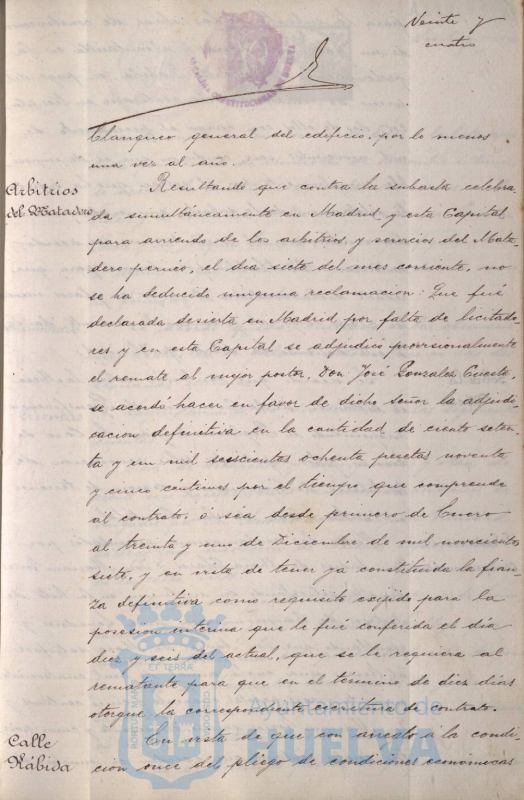 Veinte y
cuatro
blanqueo general del edificio, por lo menos
una vez al año.
Arbitrios
del Matadero
Resultando que contra la subasta celebra-
da simultáneamente en Madrid y esta Capital
para arriendo de los arbitrios y servicios del Mata-
dero público, el dia siete del mes corriente, no
se ha deducido ninguna reclamacion: Que fué
declarada desierta en Madrid por falta de licitado-
res y en esta Capital se adjudicó provisionalmente
el remate al mejor postor, Don José Gonzalez Cueste,
se acordó hacer en favor de dicho señor la adjudi-
cacion definitiva en la cantidad de ciento seten-
ta y un mil seiscientas ochenta pesetas noventa
y cinco céntimos por el tiempo que comprende
el contrato, ó sea desde primero de Enero
al treinta y uno de Diciembre de mil novecientos
siete, y en vista de tener yá constituida la fian-
za definitiva como requisito exijido para la
posesion interina que le fué conferida el dia
diez y seis del actual, que se le requiera al
rematante para que en el término de diez dias
otorgue la correspondiente escritura de contrato.
Calle
Rábida
En vista de que con arreglo á la condi-
cion once del pliego de condiciones económicas
Ayuntamiento de
HUELVA